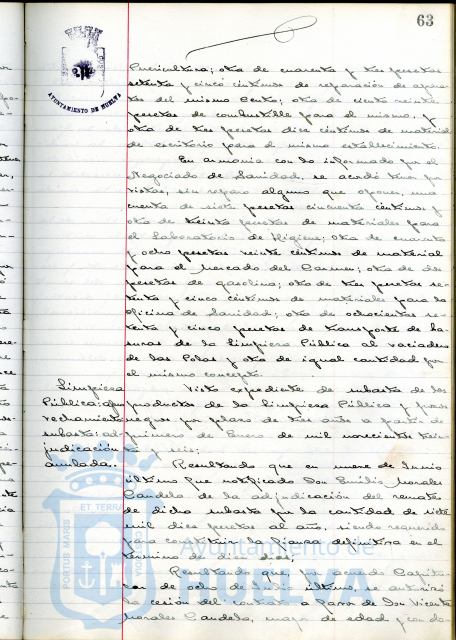 63
AYUNTAMIENTO DE HUELVA
Puericultura; otra de cuarenta y tres pesetas
setenta y cinco céntimos de reparación de apara-
tos del mismo Centro; otra de ciento veinte
pesetas de combustible para el mismo, y
otra de tres pesetas diez céntimos de material
de escritorio para el mismo establecimiento.
En armonía con lo informado por el
Negociado de Sanidad, se acordó tener por
vistas, sin reparo alguno que oponer, una
cuenta de siete pesetas cincuenta céntimos y
otra de treinta pesetas de materiales para
el Laboratorio de Higiene; otra de cuarenta
y ocho pesetas veinte céntimos de material
para el Mercado del Carmen; otra de dos
pesetas de gasolina; otra de tres pesetas se-
tenta y cinco céntimos de materiales para la
oficina de Sanidad; otra de ochocientas se-
tenta y cinco pesetas de transporte de ba-
suras de la Limpieza Pública al vaciadero
de las Polas y otra de igual cantidad por
el mismo concepto.
Limpieza
Pública:
vechamiento
subasta: ad-
judicación
anulada.
Visto expediente de subasta de los
productos de la Limpieza Pública y
por plazo de tres años a partir de
primero de Enero de mil novecientos trein-
ta y seis;
Resultando que en nueve de Junio
último fue notificado Don Emilio Morales
Candela de la adjudicación del remate
de dicha subasta por la cantidad de siete
mil diez pesetas al año, siendo requerido
para constituir la fianza definitiva en el
término de diez días;
Resultando que, por acuerdo Capitu-
lar de ocho de Julio último, se autorizó
la cesión del contrato a favor de Don Vicente
Morales Candela, mayor de edad y con do-
PORTUS MARIS
ET TERRAE
Ayuntamiento de
HUELVA